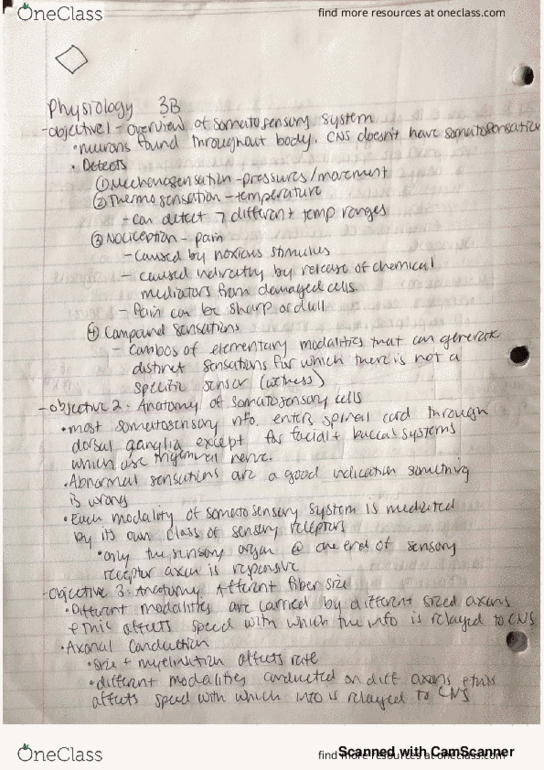 OneClass
find more resources at oneclass.com
Physiology 3B
-objective 1 - overview of somatosensory system
•neurons found throughout body. CNS doesn't have somatosensation
• Detects
① Mechanosensation - pressures/movement
② Thermosensation - temperature
- can detect 7 different temp ranges
③ Nociception - pain
- caused by noxious stimulus
- caused indirectly by release of chemical
mediators from damaged cells
- Pain can be sharp or dull
④ Compound sensations
- Combos of elementary modalities that can generate
distinct sensations for which there is not a
specific sensor (wetness)
-objective 2: Anatomy of somatosensory cells
•most somatosensory info enters spinal cord through
dorsal ganglia except for facial + buccal systems
which use trigeminal nerve.
•Abnormal sensations are a good indication something
is wrong
•Each modality of somatosensory system is mediated
by its own class of sensory receptors
•only the sensory organ @ one end of sensory
receptor axon is responsive
-Objective 3: Anatomy: Afferent fiber size
•Different modalities are carried by different sized axons
& this affects speed with which the info is relayed to CNS
•Axonal Conduction
•size + myelination affects rate
•different modalities conducted on diff axons & this
affects speed with which info is relayed to CNS
OneClass
find more resources at oneclass.com
Scanned with CamScanner